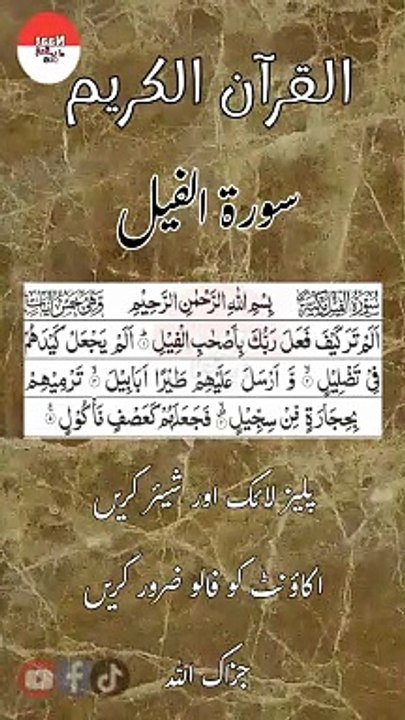 القرآن الكريم
سورة الفيل
سُوْرَةُ الْفِيْلِ مَكِّيَّةٌ بِسْمِ اللهِ الرَّحْمٰنِ الرَّحِيْمِ وَهِيَ خَمْسُ اٰيَاتٍ
اَلَمْ تَرَ كَيْفَ فَعَلَ رَبُّكَ بِاَصْحٰبِ الْفِيْلِ ۱ اَلَمْ يَجْعَلْ كَيْدَهُمْ
فِيْ تَضْلِيْلٍ ۲ وَّ اَرْسَلَ عَلَيْهِمْ طَيْرًا اَبَابِيْلَ ۳ تَرْمِيْهِمْ
بِحِجَارَةٍ مِّنْ سِجِّيْلٍ ۴ فَجَعَلَهُمْ كَعَصْفٍ مَّاْكُوْلٍ ۵
پلیز لائک اور شیئر کریں
اکاؤنٹ کو فالو ضرور کریں
جزاک اللہ